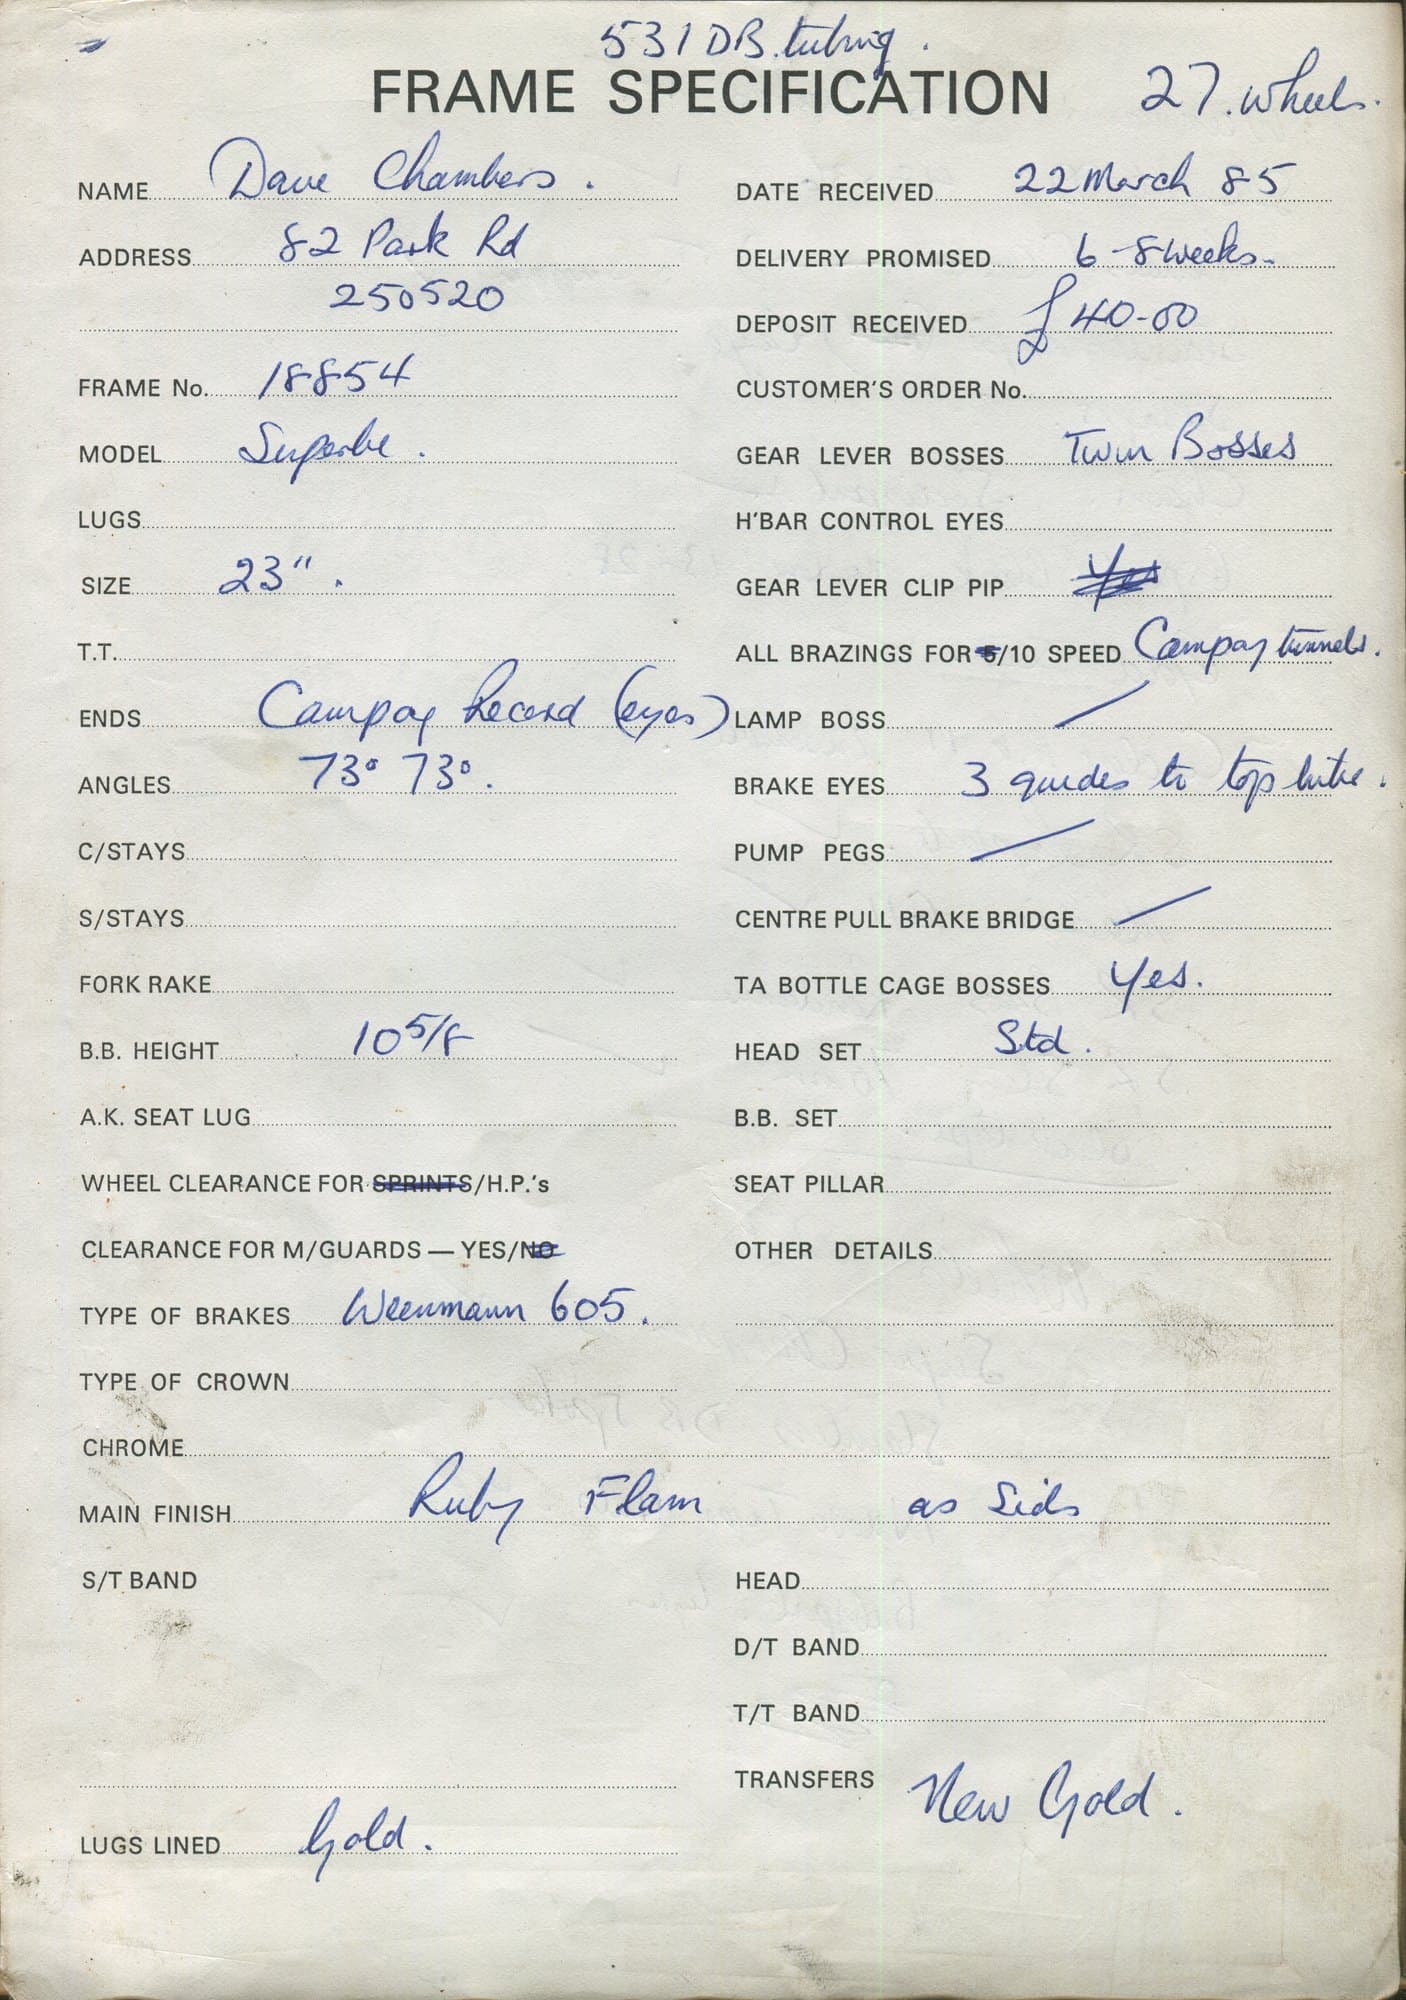 531 DB tubing.
FRAME SPECIFICATION
27. wheels.
NAME Dave Chambers.
ADDRESS 82 Park Rd
250520
FRAME No. 18854
MODEL Superbe.
LUGS
SIZE 23".
T.T.
ENDS Campag Record (eyes)
ANGLES 73° 73°.
C/STAYS
S/STAYS
FORK RAKE
B.B. HEIGHT 10 5/8
A.K. SEAT LUG
WHEEL CLEARANCE FOR SPRINTS/H.P.'s
CLEARANCE FOR M/GUARDS — YES/NO
TYPE OF BRAKES Weinmann 605.
TYPE OF CROWN
CHROME
MAIN FINISH Ruby Flam as Sids
S/T BAND
LUGS LINED Gold.
DATE RECEIVED 22 March 85
DELIVERY PROMISED 6-8 weeks.
DEPOSIT RECEIVED £40-00
CUSTOMER'S ORDER No.
GEAR LEVER BOSSES Twin Bosses
H'BAR CONTROL EYES
GEAR LEVER CLIP PIP Yes
ALL BRAZINGS FOR 5/10 SPEED Campag tunnels.
LAMP BOSS /
BRAKE EYES 3 guides to top tube.
PUMP PEGS /
CENTRE PULL BRAKE BRIDGE /
TA BOTTLE CAGE BOSSES Yes.
HEAD SET Std.
B.B. SET
SEAT PILLAR
OTHER DETAILS
HEAD
D/T BAND
T/T BAND
TRANSFERS New Gold.